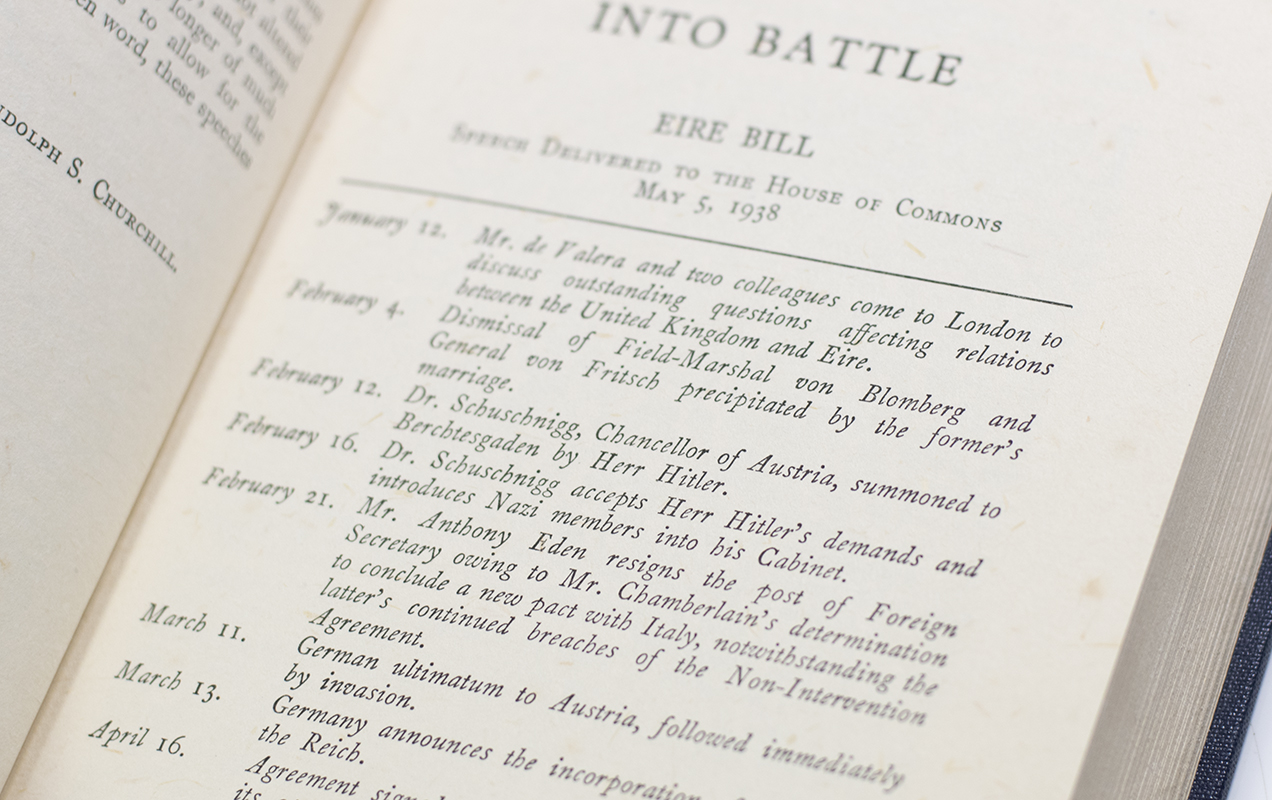 their
not altered
and, except
longer of much
to allow for the
word, these speeches
DOLPH S. CHURCHILL.
INTO BATTLE
EIRE BILL
SPEECH DELIVERED TO THE HOUSE OF COMMONS
MAY 5, 1938
January 12. Mr. de Valera and two colleagues come to London to
discuss outstanding questions affecting relations
between the United Kingdom and Eire.
February 4. Dismissal of Field-Marshal von Blomberg and
General von Fritsch precipitated by the former's
marriage.
February 12. Dr. Schuschnigg, Chancellor of Austria, summoned to
Berchtesgaden by Herr Hitler.
February 16. Dr. Schuschnigg accepts Herr Hitler's demands and
introduces Nazi members into his Cabinet.
February 21. Mr. Anthony Eden resigns the post of Foreign
Secretary owing to Mr. Chamberlain's determination
to conclude a new pact with Italy, notwithstanding the
latter's continued breaches of the Non-Intervention
Agreement.
March 11. German ultimatum to Austria, followed immediately
by invasion.
March 13. Germany announces the incorporation
the Reich.
April 16. Agreement
its